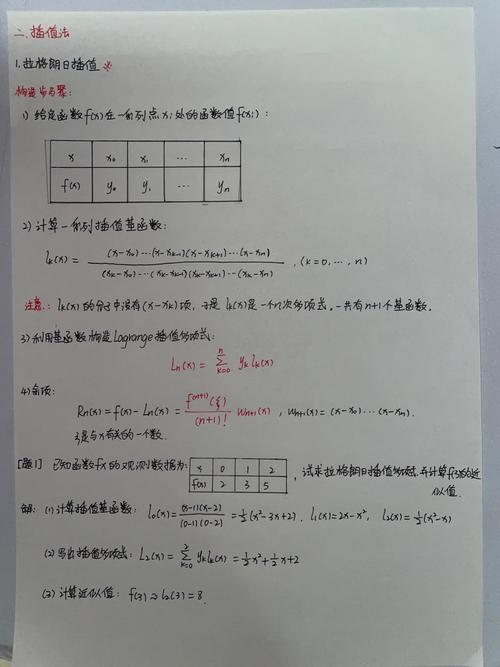 二.插值法
1.拉格朗日插值 ※
构造步骤:
1) 给定函数f(x)在一系列点xi处的函数值f(xi):
x x₀ x₁ … xₙ
f(x) y₀ y₁ … yₙ
2) 计算一系列插值基函数:
lₖ(x) = (x-x₀)…(x-xₖ₋₁)(x-xₖ₊₁)…(x-xₙ) / (xₖ-x₀)…(xₖ-xₖ₋₁)(xₖ-xₖ₊₁)…(xₖ-xₙ) , (k=0,…,n)
注意: lₖ(x)的分子中没有(x-xₖ)项, 于是lₖ(x)是一个n次多项式. 一共有n+1个基函数.
3) 利用基函数构造Lagrange插值多项式:
Lₙ(x) = Σₖ₌₀ⁿ yₖlₖ(x)
4) 余项:
Rₙ(x) = f(x) - Lₙ(x) = f⁽ⁿ⁺¹⁾(ξ)/(n+1)! wₙ₊₁(x) , wₙ₊₁(x) = (x-x₀)…(x-xₙ).
ξ是与x有关的一个数.
[题1] 已知函数fx的观测数据为: x 0 1 2 , 试求拉格朗日插值多项式, 并计算f(3)的近
f(x) 2 3 5 似值.
解: (1) 计算插值基函数: l₀(x) = (x-1)(x-2)/(0-1)(0-2) = ½(x²-3x+2), l₁(x) = 2x-x², l₂(x) = ½(x²-x)
(2) 写出插值多项式: L₂(x) = Σₖ₌₀² yₖlₖ(x) = ½x²+½x+2
(3) 计算近似值: f(3) ≈ L₂(3) = 8.